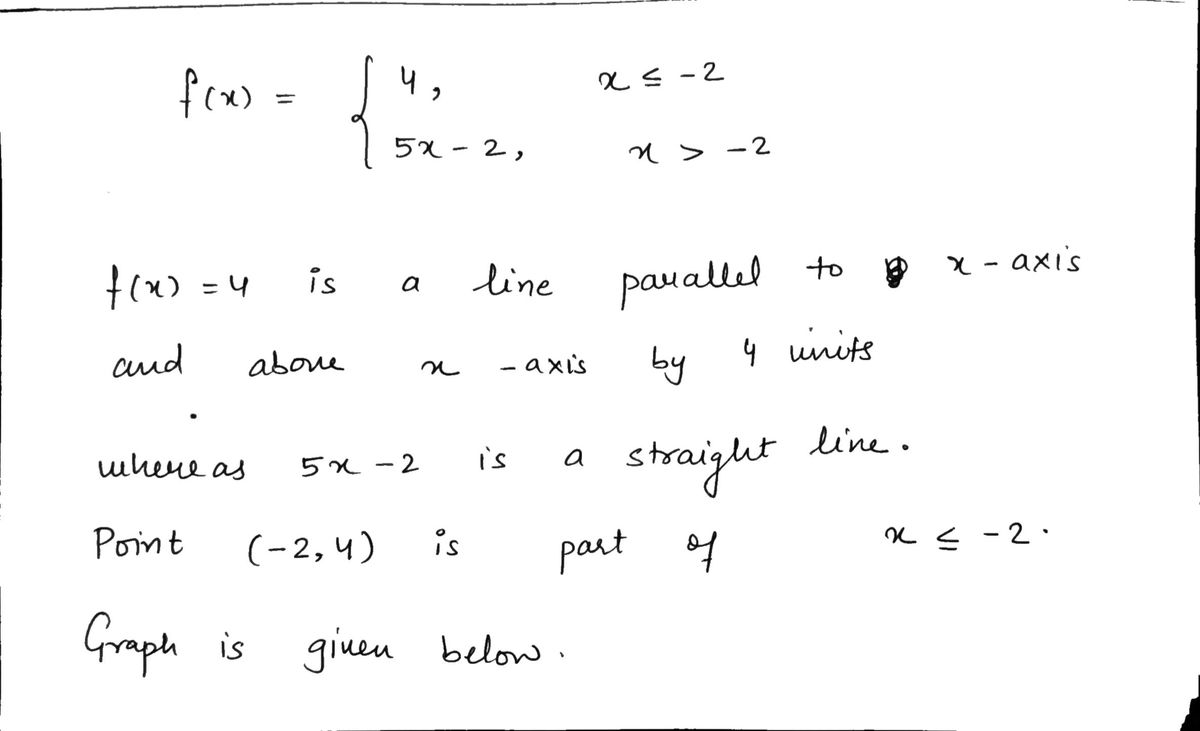 f(x) = { 4, x ≤ -2
5x - 2, x > -2
f(x) = 4 is a line parallel to x - axis
and above x - axis by 4 units
whereas 5x - 2 is a straight line.
Point (-2, 4) is part of x ≤ -2.
Graph is given below.